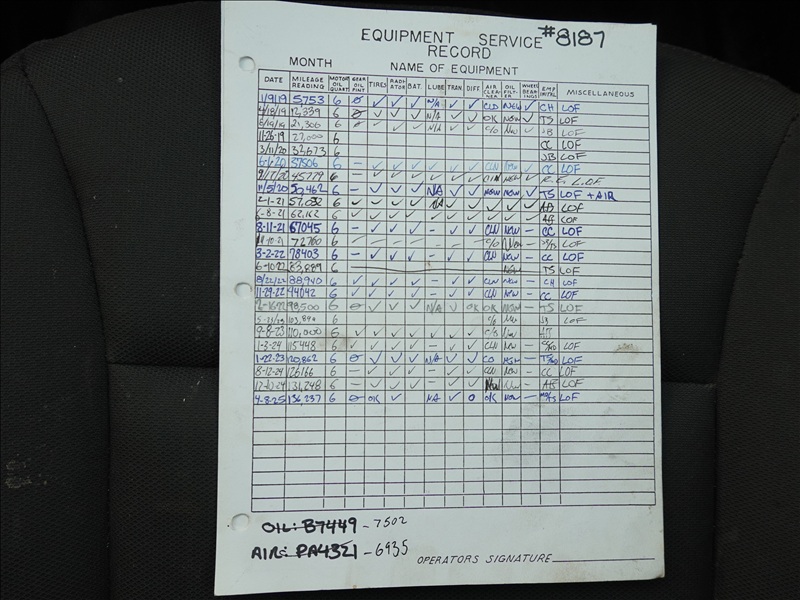 EQUIPMENT SERVICE #8187
RECORD
MONTH
NAME OF EQUIPMENT
DATE MILEAGE READING MOTOR OIL QUART GEAR OIL PINT TIRES RADIATOR BAT. LUBE TRAN. DIFF. AIR CLEANER OIL FILTER WHEEL BEARINGS EMP INITIAL MISCELLANEOUS
1/9/19 5,753 6 ∅ ✓ ✓ ✓ N/A ✓ ✓ CLD NEW ✓ CH LOF
4/18/19 12,339 6 ∅ ✓ ✓ ✓ N/A ✓ ✓ OK NEW ✓ TS LOF
21,306 6 ✓ ✓ ✓ N/A ✓ ✓ LOF
11-26-19 27,000 6 LOF
3/11/20 33,673 6 CC LOF
JB LOF
6-1-20 37506 6 – ✓ ✓ ✓ ✓ ✓ ✓ CLN ✓ CC LOF
45779 6 – ✓ ✓ ✓ ✓ ✓ ✓ CLN NEW ✓ LOF
11/5/20 50,462 6 – ✓ ✓ ✓ N/A ✓ ✓ NEW NEW ✓ TS LOF + AIR
2-1-21 57,032 6 ✓ ✓ ✓ ✓ N/A ✓ ✓ ✓ ✓ ✓ AB LOF
6-8-21 62,162 6 ✓ ✓ ✓ ✓ ✓ ✓ ✓ ✓ ✓ AB LOF
8-11-21 67045 6 – ✓ ✓ ✓ – ✓ ✓ CLN NEW – CC LOF
72760 LOF
3-2-22 78403 6 – ✓ ✓ ✓ – ✓ ✓ CLN NEW – CC LOF
6-10-22 83,889 6 NEW TS LOF
8/22/22 88,940 6 ✓ ✓ ✓ ✓ – ✓ ✓ CLN NEW – CH LOF
11-29-22 94042 6 ✓ ✓ ✓ ✓ – ✓ ✓ CLN NEW – CC LOF
98,500 6 ∅ ✓ ✓ ✓ N/A ✓ OK OK NEW – TS LOF
103,890 6 LOF
9-8-23 110,000 6 ✓ ✓ ✓ ✓ ✓ ✓ ✓
1-3-24 115448 6 ✓ ✓ ✓ ✓ – ✓ ✓ CLN NEW – LOF
1-22-23 120,862 6 ∅ ✓ ✓ ✓ N/A ✓ ✓ – LOF
8-12-24 126166 6 – ✓ ✓ ✓ – ✓ ✓ CLN NEW – CC LOF
12-10-24 131,248 6 – ✓ ✓ ✓ – ✓ ✓ New New – AB LOF
4-8-25 136,237 6 ∅ OK ✓ N/A ✓ O O/K NEW – LOF
OIL: B7449 - 7502
AIR: PA4321 - 6935
OPERATORS SIGNATURE